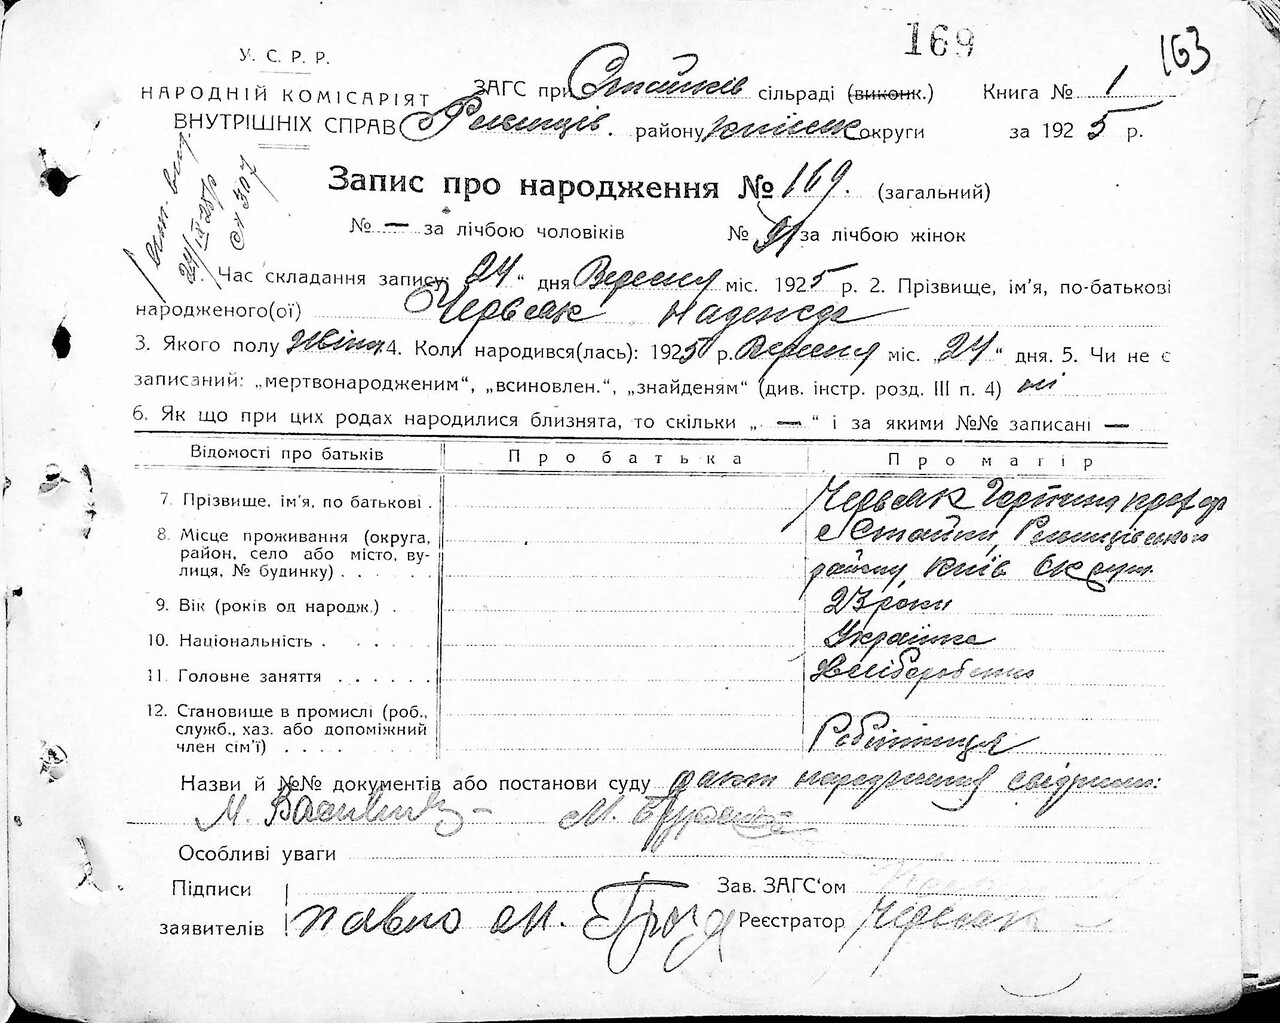 169
163
У. С. Р. Р.
НАРОДНІЙ КОМІСАРІЯТ
ВНУТРІШНІХ СПРАВ
ЗАГС при Стайків сільраді (виконк.) Книга № 1
району округи за 1925 р.
Запис про народження № 169. (загальний)
№ — за лічбою чоловіків № 91 за лічбою жінок
24/IX 25р
№ 307
Час складання запису: 24 " дня Вересня міс. 1925 р. 2. Прізвище, ім'я, по-батькові
народженого(ої) Червяк Надежда
3. Якого полу жіноч. 4. Коли народився(лась): 1925 р. Вересня міс. „24" дня. 5. Чи не є
записаний: „мертвонародженим", „всиновлен.", „знайденям" (див. інстр. розд. III п. 4) ні
6. Як що при цих родах народилися близнята, то скільки „ — " і за якими №№ записані —
Відомості про батьків Про батька Про матір
7. Прізвище, ім'я, по батькові . Червяк
8. Місце проживання (округа, с Стайки,
район, село або місто, ву- району, Київ Округи
лиця, № будинку) . . . . .
9. Вік (років од народж.) . 23 роки
10. Національність . . . . . . Українка
11. Головне заняття . . . . . . Хліборобство
12. Становище в промислі (роб.,
служб., хаз. або допоміжний Робітниця
член сім'ї) . . . .
Назви й №№ документів або постанови суду факт народження свідчили:
М. М.
Особливі уваги
Підписи Зав. ЗАГС'ом
заявителів Павло М. Реєстратор Червяк